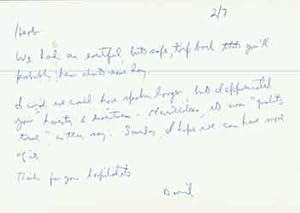 2/7
Herb
We had an eventful, but safe, trip back that you'll
probably hear about some day.
I wish we could have spoken longer, but I appreciated
your honesty &
Nonetheless, it was "quality
time", as they say. Someday I hope we can have more
of it.
Thanks for your hospitality
David